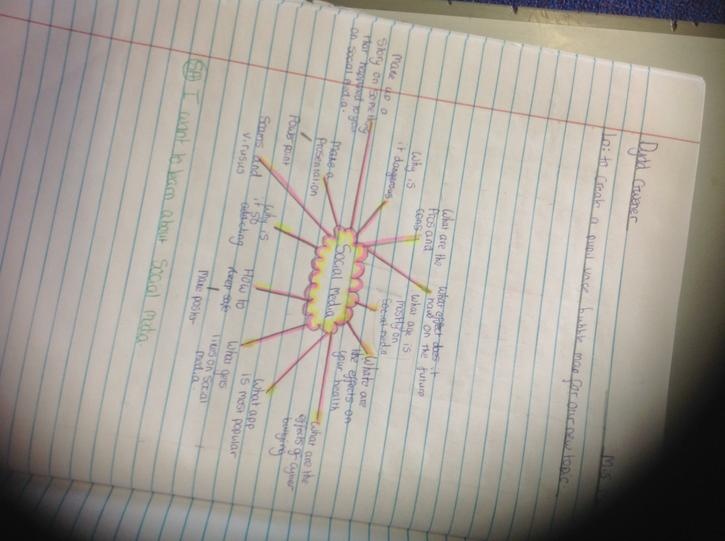 Dydd Gwener
Mis
to create a pupil voice bubble map for our new topic.
Make up a
story on something
that happened to you
on social media.
Why is
it dangerous
What are the
Pros and
cons
What effect does it
have on the future
What age is
mostly on
Social media
What are
the effects on
your health
What are the
effects of cyber
bullying
What app
is most popular
What goes
Media
How to
keep safe
Make poster
Why is
it so
addicting
Scams and
virusus
Make a
Presentation
Power point
Social Media
I want to learn about Social Media.